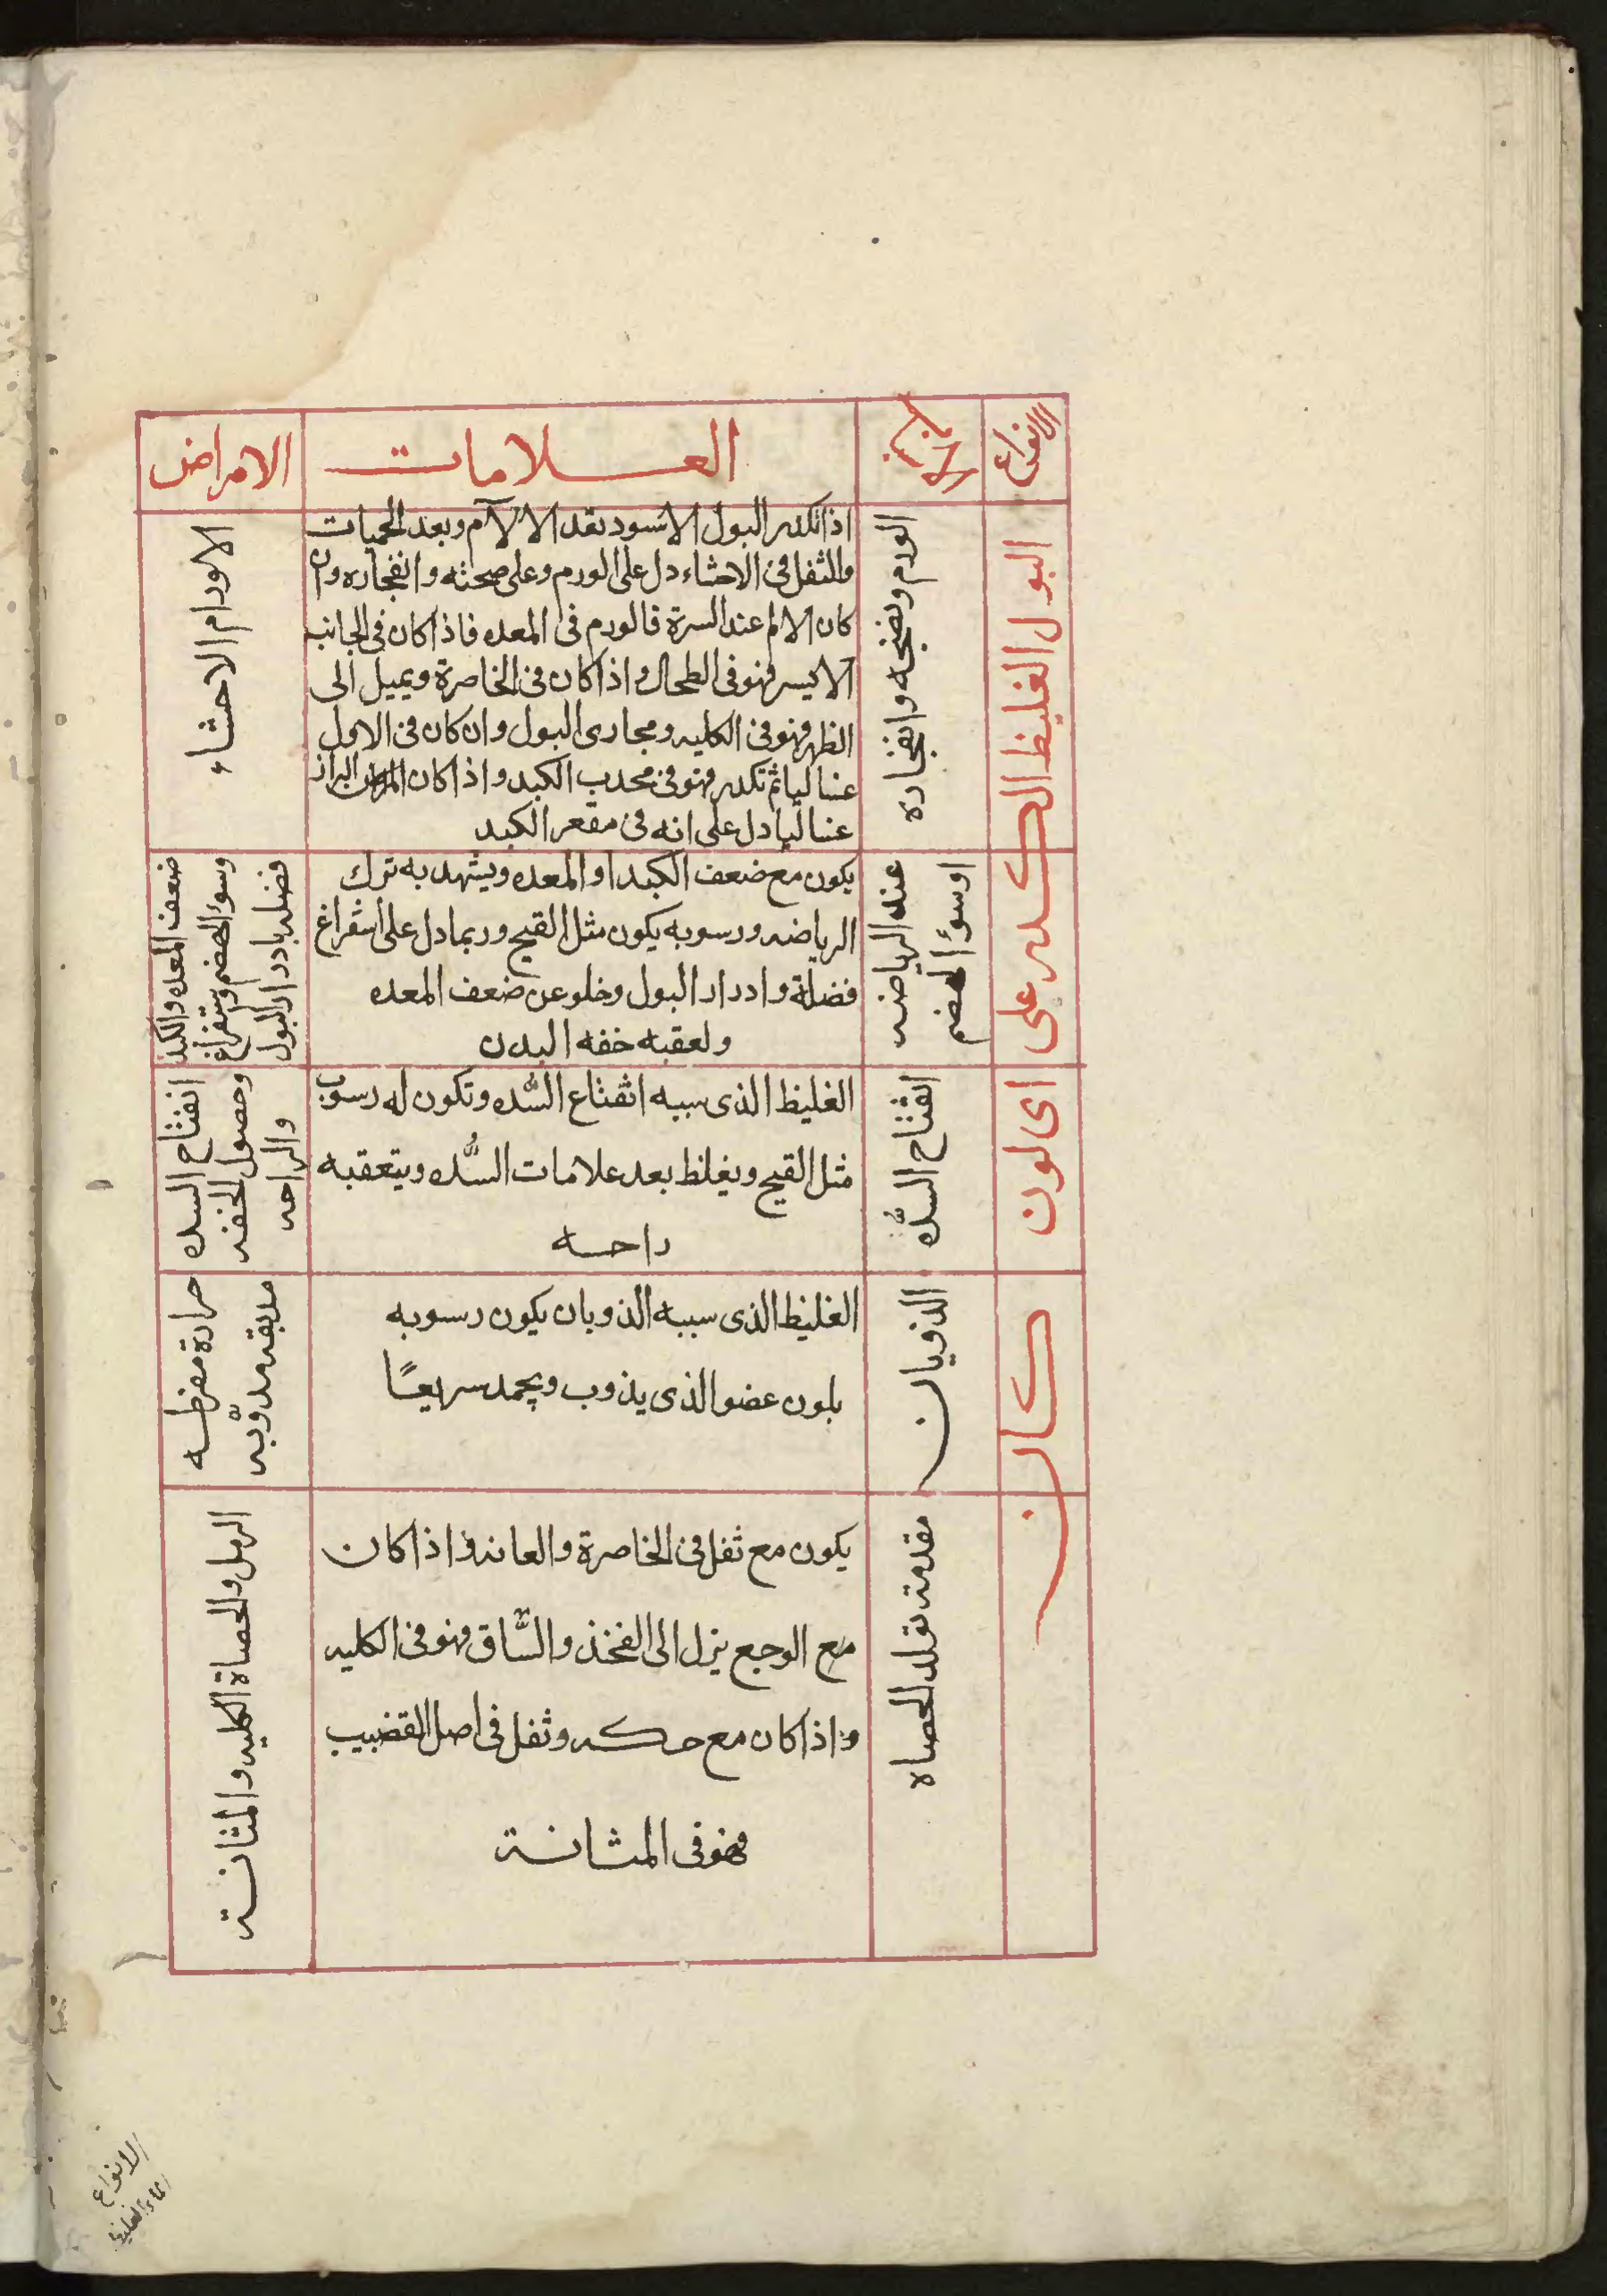 الانواع
الاسباب
العلامات
الامراض
البول الغليظ الكدر على اى لون كان
الورم ونضجه وانفجاره
اذا تكدر البول الاسود بعد الالآم وبعد الحميات
والثفل فى الاحشاء دل على الورم وعلى صحته وانفجاره وان
كان الالم عند السرة فالورم فى المعده فاذا كان فى الجانب
الايسر فهو فى الطحال واذا كان فى الخاصرة ويميل الى
الظهر فهو فى الكليه ومجارى البول وان كان فى الاول
عنا ليا ثم تكدر فهو فى محدب الكبد واذا كان البراز
عنا ليا دل على انه فى مقعر الكبد
الاورام الاحشاء
عند الرياضه
او سوؤ الهضم
يكون مع ضعف الكبد او المعده ويشهد به ترك
الرياضه ورسوبه يكون مثل القيح وربما دل على اسفراغ
فضلة وادرار البول وخلو عن ضعف المعده
ولعقبه خفه البدن
ضعف المعده والكبد
وسوؤ الهضم واستفراغ
فضله بادرار البول
انفتاح السُّده
الغليظ الذى سببه انفتاع السُّده وتكون له رسوب
مثل القيح ويغلظ بعد علامات السُّده ويتعقبه
راحه
انفتاح السده
وحصول الخفه
والراحه
الذوبان
الغليظ الذى سببه الذوبان يكون رسوبه
بلون عضو الذى يذوب ويجمد سريعًا
حرارة مفرطه
مذوّبه
مقدمة تولد الحصاه
يكون مع ثفل فى الخاصرة والعانه واذا كان
مع الوجع ينزل الى الفخذ والسَّاق فهو فى الكليه
واذا كان مع حكه وثفل فى اصل القضيب
فهو فى المثانة
الرمل والحصاة الكليه والمثانة
الانواع
الماء الغليظ